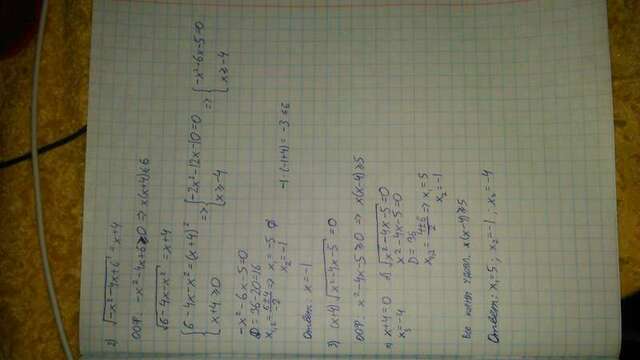 2) √(-x²-4x+6) = x+4
ООФ. -x²-4x+6≥0 ⇒ x(x+4)≤6
√(6-4x-x²) = x+4
{6-4x-x²=(x+4)² ⇒ {-2x²-12x-10=0 ⇒ {-x²-6x-5=0
{x+4≥0 {x≥-4 {x≥-4
-x²-6x-5=0
D=36-20=16
x₁,₂= (6±4)/-2 ⇒ x₁=-5 ∅
x₂=-1 -1·(-1+4)=-3≤6
Ответ: x=-1
3) (x+4)√(x²-4x-5)=0
ООФ. x²-4x-5≥0 ⇒ x(x-4)≥5
а) x+4=0 б) √(x²-4x-5)=0
x₃=-4 x²-4x-5=0
D=36
x₁,₂= (4±6)/2 ⇒ x₁=5
x₂=-1
Все корни удовл. x(x-4)≥5
Ответ: x₁=5; x₂=-1; x₃=-4